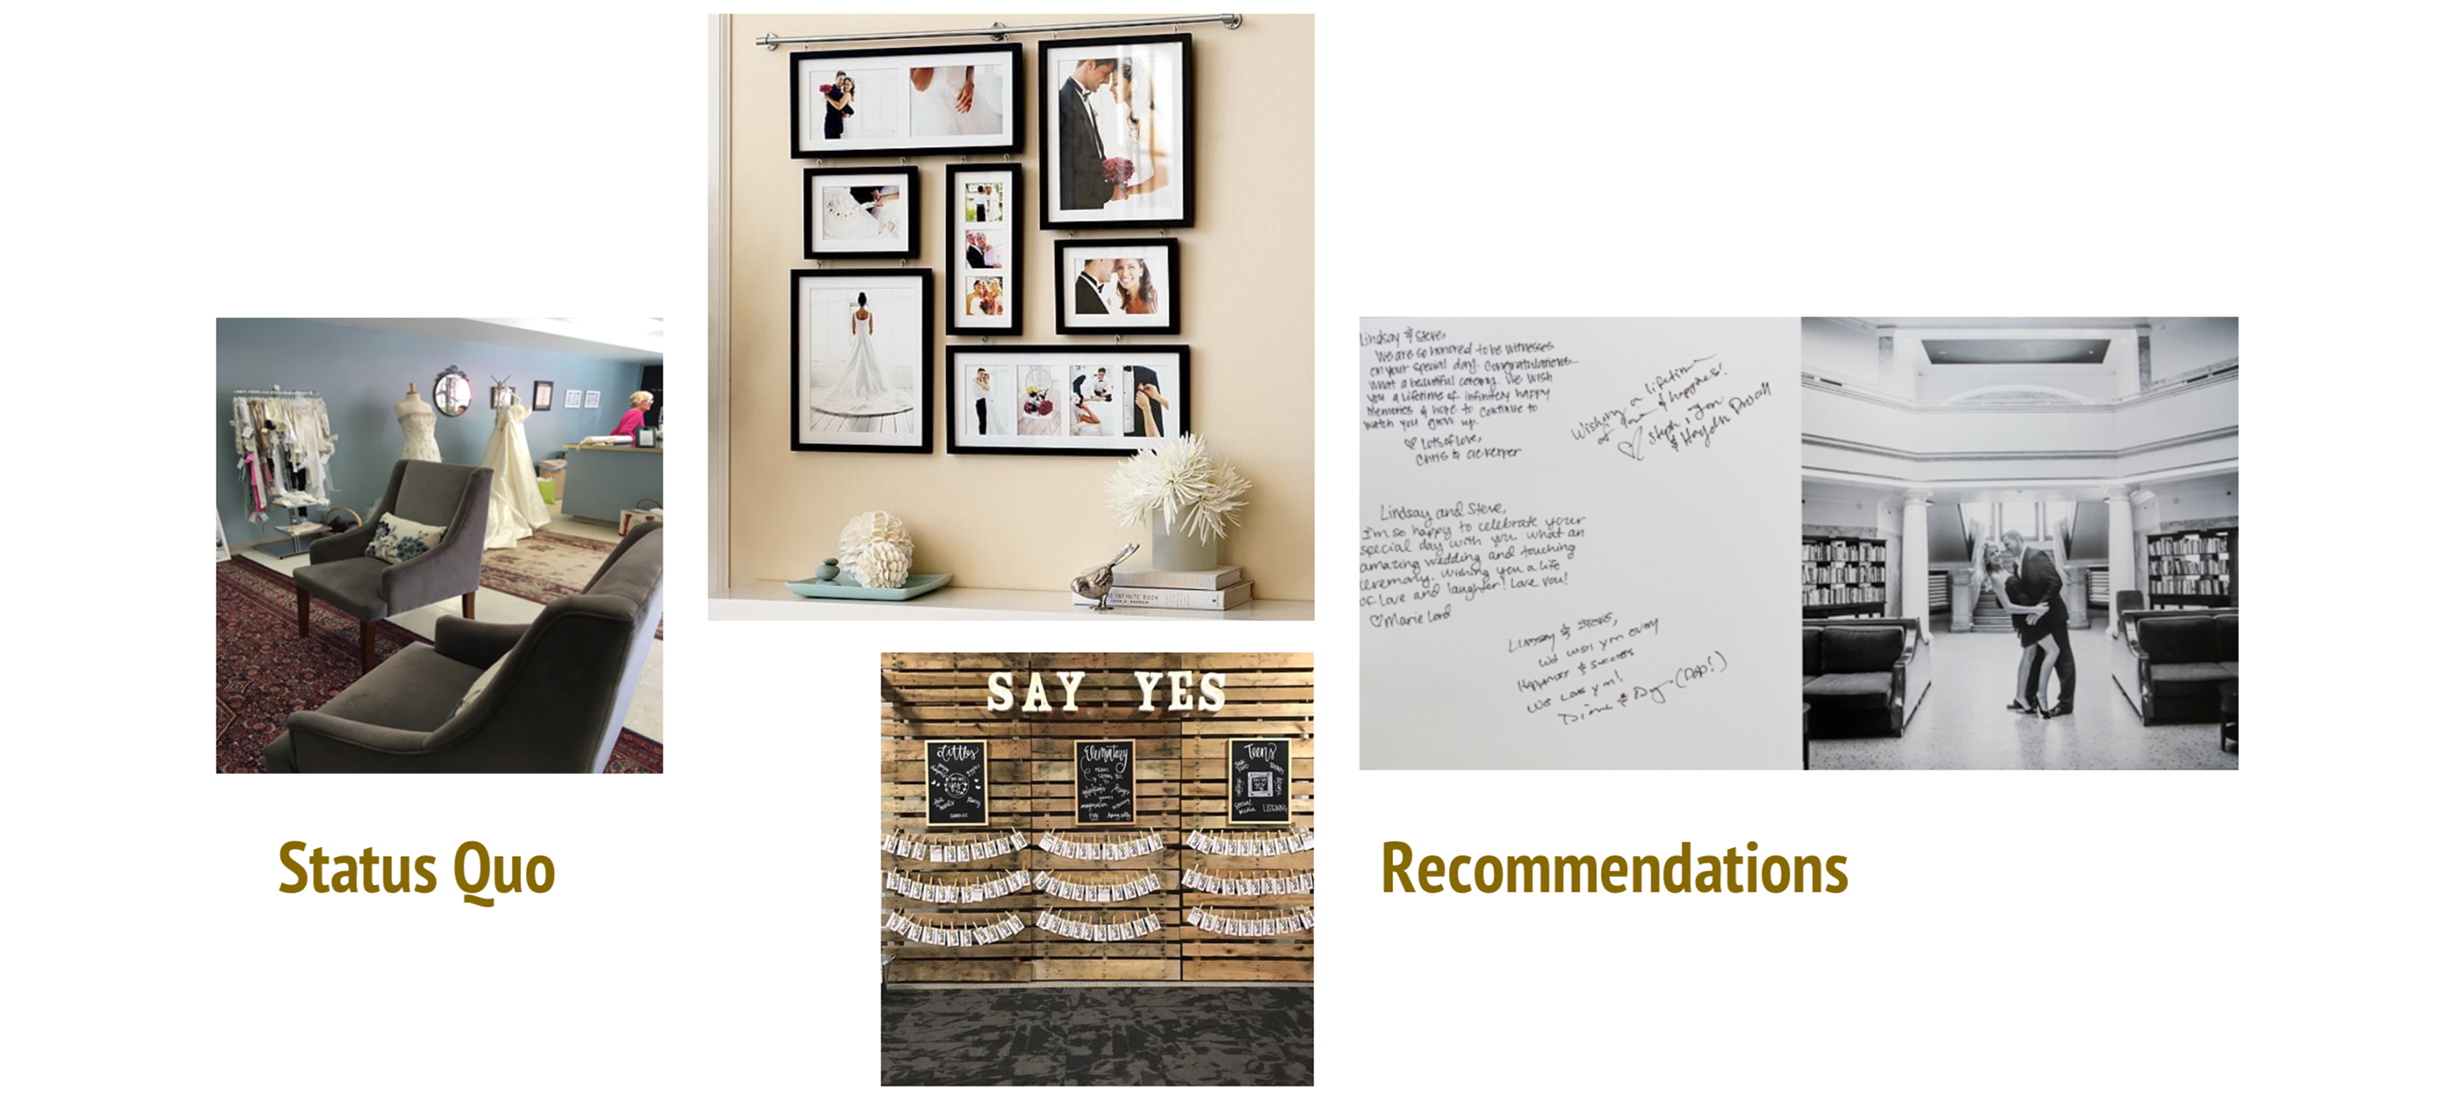 SAY YES
Littles
Elementary
Teens
SOCIAL
MEDIA
INFINITE BOOK
Lindsay & Steve,
We are so honored to be witnesses
on your special day. Congratulations
what a beautiful ceremony. We wish
you a lifetime of infinitely happy
memories & hope to continue to
watch you grow up.
♡ Lots of love,
Chris &
Wishing a lifetime
of love & happiness!
♡ Steph, Jon
& Hayden Driscoll
Lindsay and Steve,
I'm so happy to celebrate your
special day with you what an
amazing wedding and touching
ceremony. Wishing you a life
of love and laughter! Love you!
♡ Marie Lord
Lindsay & Steve,
We wish you every
Happiness & success
We Love you!
Diane & Doug (Dad!)
Status Quo
Recommendations